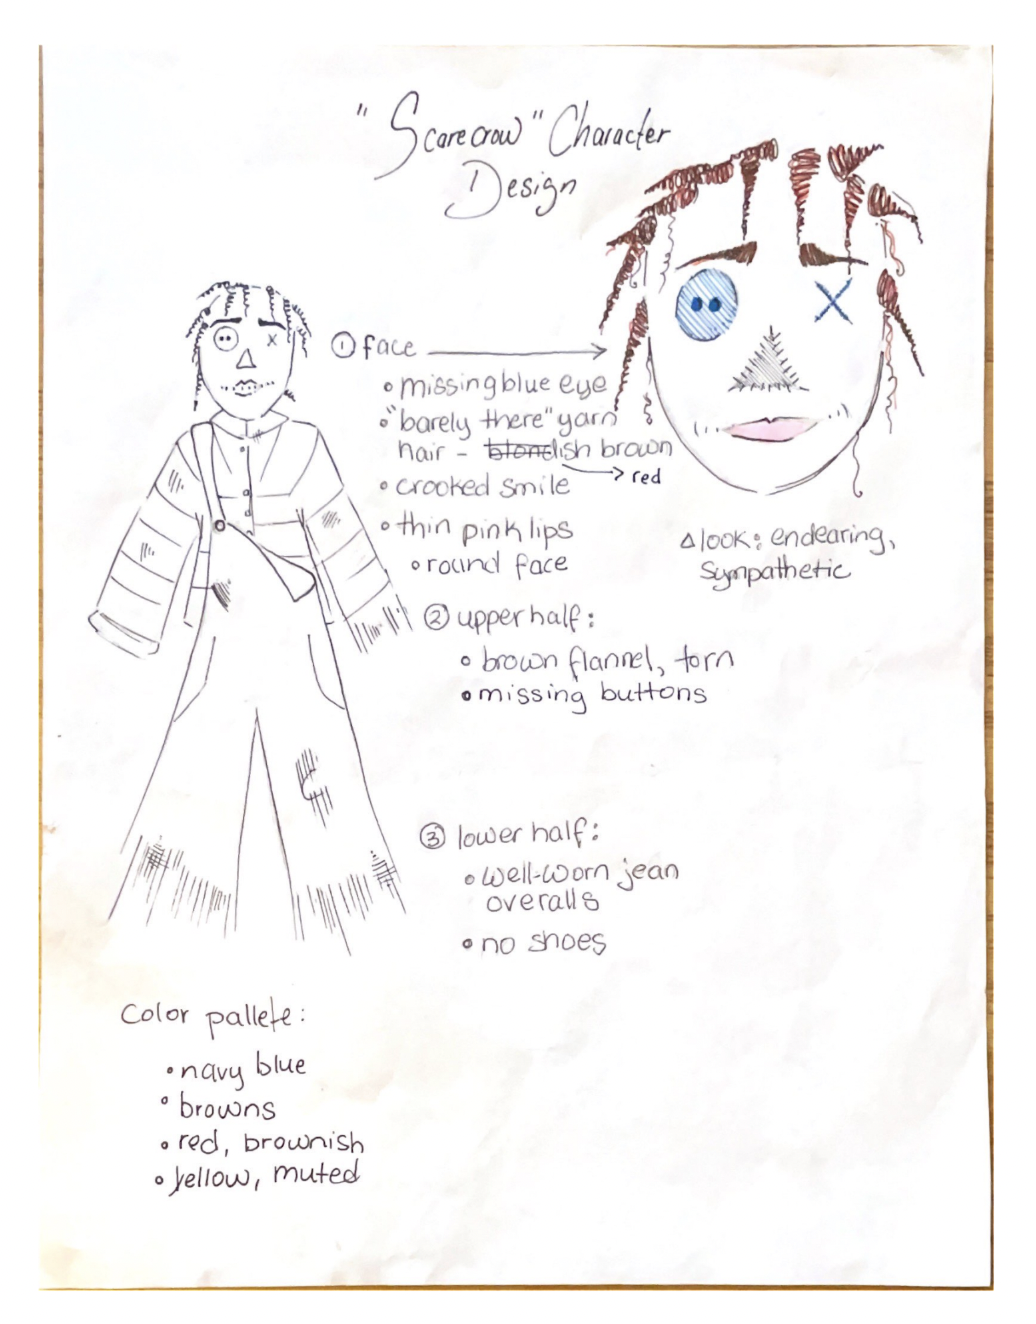 "Scarecrow" Character
Design
① face
• missing blue eye
• "barely there" yarn
hair - blondish brown
→ red
• crooked smile
• thin pink lips
• round face
△ look: endearing,
sympathetic
② upper half:
• brown flannel, torn
• missing buttons
③ lower half:
• well-worn jean
overalls
• no shoes
Color pallete:
• navy blue
• browns
• red, brownish
• yellow, muted